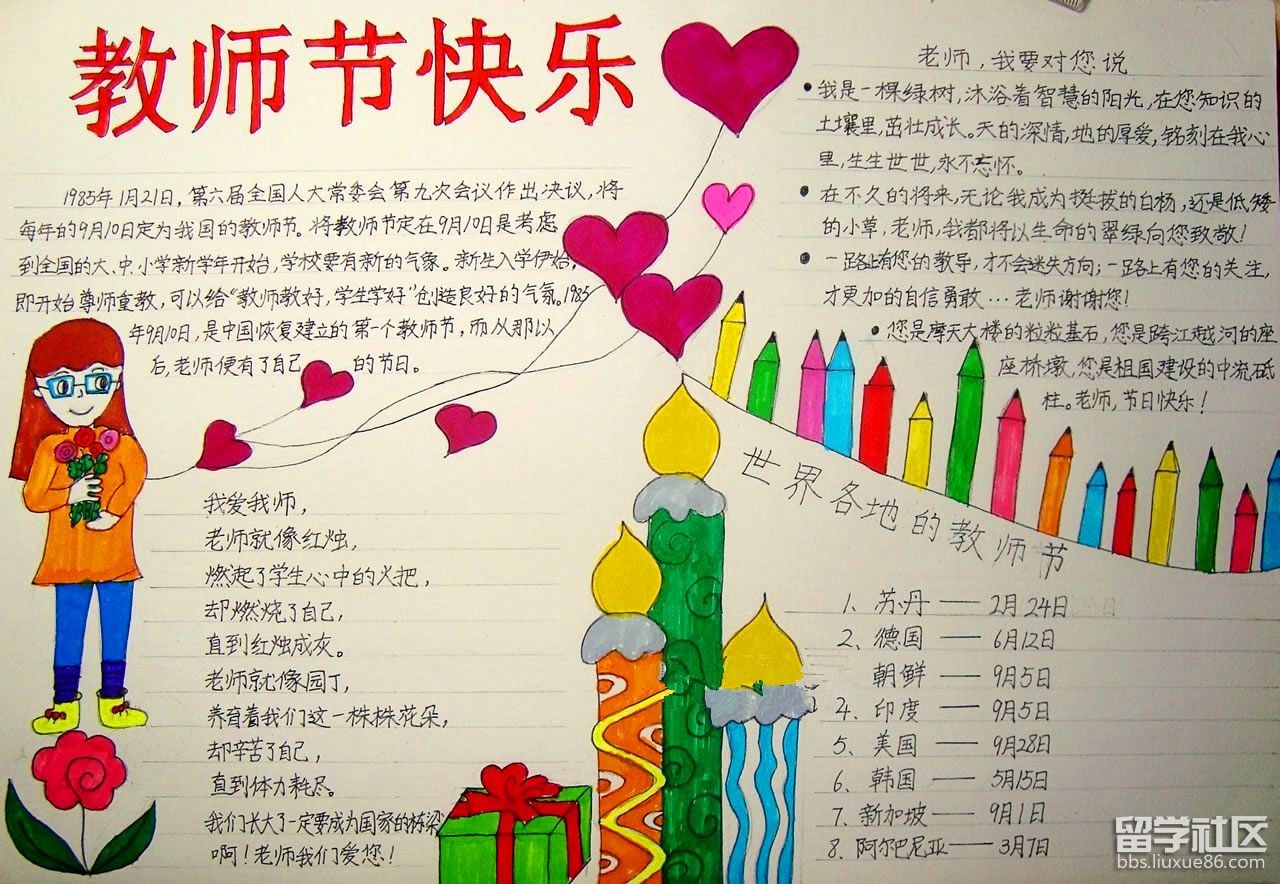 教师节快乐
1985年1月21日,第六届全国人大常委会第九次会议作出决议,将
每年的9月10日定为我国的教师节。将教师节定在9月10日是考虑
到全国的大、中、小学新学年开始,学校要有新的气象。新生入学伊始,
即开始尊师重教,可以给“教师教好,学生学好”创造良好的气氛。1985
年9月10日,是中国恢复建立的第一个教师节,而从那以
后,老师便有了自己的节日。
老师,我要对您说
•我是一棵绿树,沐浴着智慧的阳光,在您知识的
土壤里,茁壮成长。天的深情,地的厚爱,铭刻在我心
里,生生世世,永不忘怀。
•在不久的将来,无论我成为挺拔的白杨,还是低矮
的小草,老师,我都将以生命的翠绿向您致敬!
•一路上有您的教导,才不会迷失方向;一路上有您的关注,
才更加的自信勇敢…老师谢谢您!
•您是摩天大楼的粒粒基石,您是跨江越河的座
座桥墩,您是祖国建设的中流砥
柱。老师,节日快乐!
我爱我师,
老师就像红烛,
燃起了学生心中的火把,
却燃烧了自己,
直到红烛成灰。
老师就像园丁,
养育着我们这一株株花朵,
却辛苦了自己,
直到体力耗尽。
我们长大了一定要成为国家的栋梁
啊!老师我们爱您!
世界各地的教师节
1、苏丹——2月24日
2、德国——6月12日
朝鲜——9月5日
4、印度——9月5日
5、美国——9月28日
6、韩国——5月15日
7、新加坡——9月1日
8、阿尔巴尼亚——3月7日
留学社区
bbs.liuxue86.com